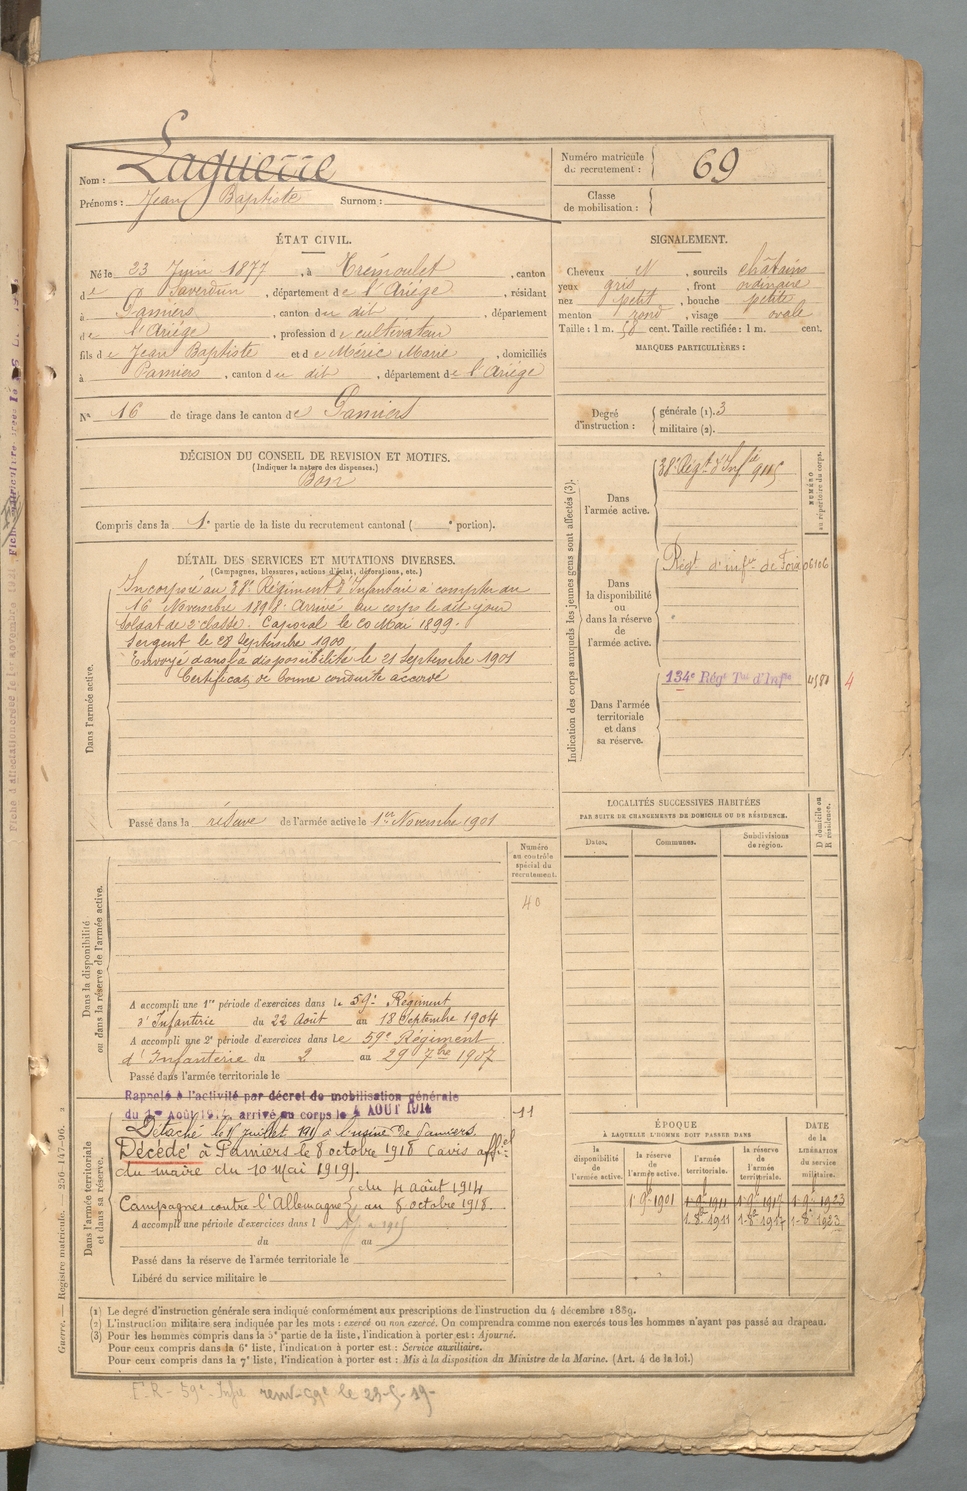 Nom : Laguerre
Prénoms : Jean Baptiste Surnom :
Numéro matricule du recrutement : 69
Classe de mobilisation :
ÉTAT CIVIL.
Né le 23 Juin 1877, à Trémoulet, canton
de Saverdun, département de l'Ariège, résidant
à Pamiers, canton du dit, département
de l'Ariège, profession de cultivateur
fils de Jean Baptiste et de Méric Marie, domiciliés
à Pamiers, canton du dit, département de l'Ariège
N° 16 de tirage dans le canton de Pamiers
SIGNALEMENT.
Cheveux et, sourcils châtains
yeux gris, front ordinaire
nez petit, bouche petite
menton rond, visage ovale
Taille : 1 m. 58 cent. Taille rectifiée : 1 m. cent.
MARQUES PARTICULIÈRES :
Degré d'instruction : générale (1). 3
militaire (2).
DÉCISION DU CONSEIL DE REVISION ET MOTIFS.
(Indiquer la nature des dispenses.)
Bon
Compris dans la 1e partie de la liste du recrutement cantonal ( e portion).
DÉTAIL DES SERVICES ET MUTATIONS DIVERSES.
(Campagnes, blessures, actions d'éclat, décorations, etc.)
Dans l'armée active.
Incorporé au 38e Régiment d'Infanterie à compter du
16 Novembre 1898. Arrivé au corps le dit jour
soldat de 2e classe. Caporal le 20 Mai 1899.
Sergent le 28 Septembre 1900
Envoyé dans la disponibilité le 21 Septembre 1901
Certificat de bonne conduite accordé
Passé dans la réserve de l'armée active le 1er Novembre 1901
Indication des corps auxquels les jeunes gens sont affectés (3).
NUMÉRO au répertoire du corps.
Dans l'armée active.
38e Régt d'Infie
Dans la disponibilité ou dans la réserve de l'armée active.
Régt d'infie de Foix
Dans l'armée territoriale et dans sa réserve.
134e Régt Tal d'Infie
4
LOCALITÉS SUCCESSIVES HABITÉES
PAR SUITE DE CHANGEMENTS DE DOMICILE OU DE RÉSIDENCE.
Dates. Communes. Subdivisions de région.
D domicile ou R résidence.
Dans la disponibilité ou dans la réserve de l'armée active.
Numéro au contrôle spécial du recrutement.
40
A accompli une 1re période d'exercices dans le 59e Régiment
d'Infanterie du 22 Août au 18 Septembre 1904
A accompli une 2e période d'exercices dans le 59e Régiment
d'Infanterie du 2 au 29 7bre 1907
Passé dans l'armée territoriale le
Dans l'armée territoriale et dans sa réserve.
Rappelé à l'activité par décret de mobilisation générale
du 1er Août 1914, arrivé au corps le 4 AOUT 1914
11
Détaché le Juillet à l'usine de Pamiers.
Décédé à Pamiers le 8 octobre 1918 (avis officiel
du maire du 10 mai 1919).
Campagnes contre l'Allemagne du 4 août 1914
au 8 octobre 1918
A accompli une période d'exercices dans l
du au
Passé dans la réserve de l'armée territoriale le
Libéré du service militaire le
ÉPOQUE
À LAQUELLE L'HOMME DOIT PASSER DANS
la disponibilité de l'armée active.
la réserve de l'armée active.
l'armée territoriale.
la réserve de l'armée territoriale.
DATE de la LIBÉRATION du service militaire.
1-9-1901 1-9-1911 1-9-1917 1-9-1923
1-8-1911 1-8-1917 1-8-1923
(1) Le degré d'instruction générale sera indiqué conformément aux prescriptions de l'instruction du 4 décembre 1889.
(2) L'instruction militaire sera indiquée par les mots : exercé ou non exercé. On comprendra comme non exercés tous les hommes n'ayant pas passé au drapeau.
(3) Pour les hommes compris dans la 5e partie de la liste, l'indication à porter est : Ajourné.
Pour ceux compris dans la 6e liste, l'indication à porter est : Service auxiliaire.
Pour ceux compris dans la 7e liste, l'indication à porter est : Mis à la disposition du Ministre de la Marine. (Art. 4 de la loi.)
Guerre. — Registre matricule. — 256-147-96.